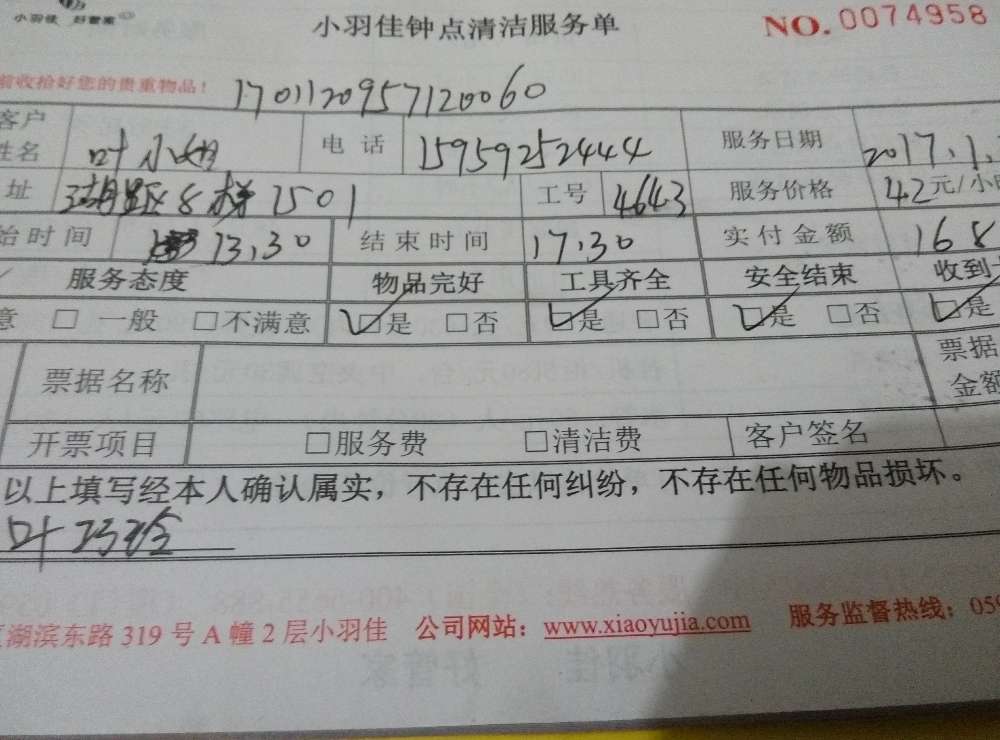 小羽佳 好管家
小羽佳钟点清洁服务单
NO. 0074958
前收拾好您的贵重物品！ 1701120957120060
客户姓名 叶小姐 电话 15959252444 服务日期 2017.1.
址 8梯1501 工号 4643 服务价格 42元/小时
始时间 13.30 结束时间 17.30 实付金额 168
服务态度 物品完好 工具齐全 安全结束 收到
意 □ 一般 □不满意 □是 □否 □是 □否 □是 □否 □是
票据名称 票据金额
开票项目 □服务费 □清洁费 客户签名
以上填写经本人确认属实，不存在任何纠纷，不存在任何物品损坏。
叶巧玲
湖滨东路 319 号 A 幢 2 层小羽佳 公司网站：www.xiaoyujia.com 服务监督热线：059